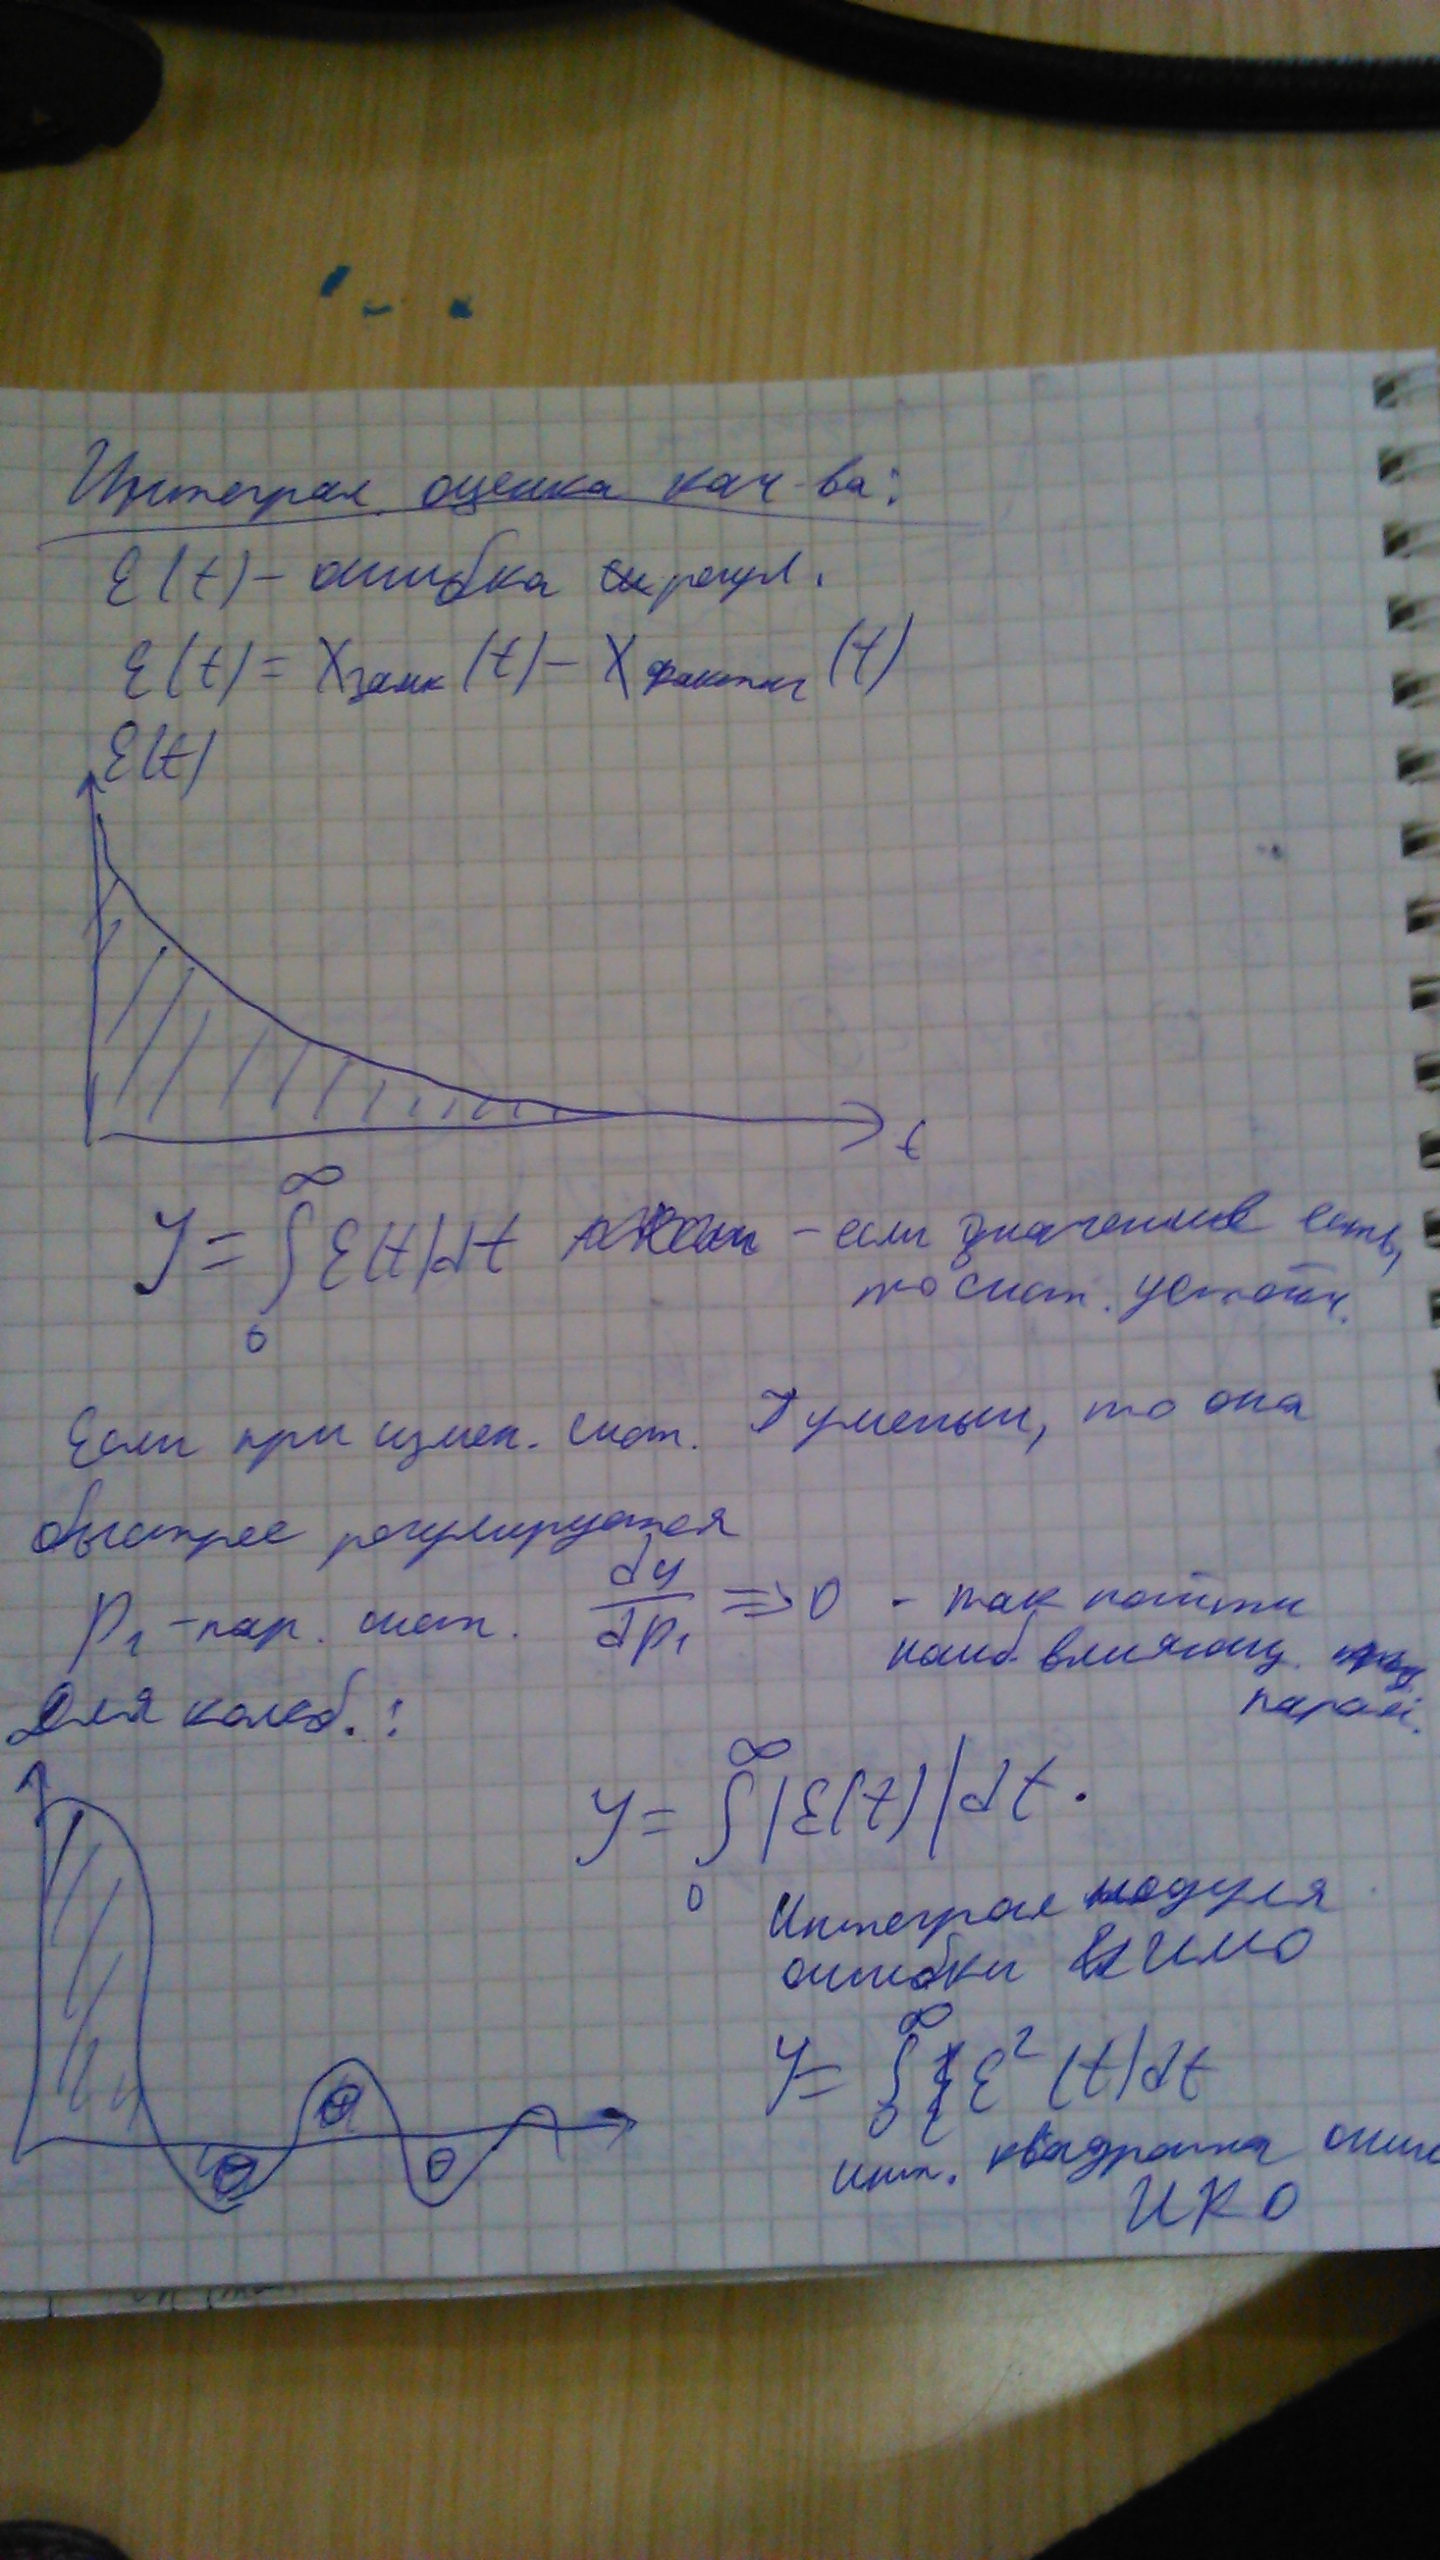 Интеграл. оценка кач-ва:
ε(t) – ошибка регул.
ε(t) = X (t) – X (t)
ε(t)
t
∞
У = ∫ ε(t)dt – если значение есть,
0
то сист. устойч.
Если при измен. сист. У уменьш, то она
быстрее регулируется
P₁ – пар. сист. dУ/dp₁ => 0 - так найти
наиб. влияющ.
парам.
Для колеб.:
∞
У = ∫ |ε(t)|dt.
0
Интеграл модуля
ошибки ИМО
∞
У = ∫ ε² (t)dt
0
инт. квадрата ошиб
ИКО